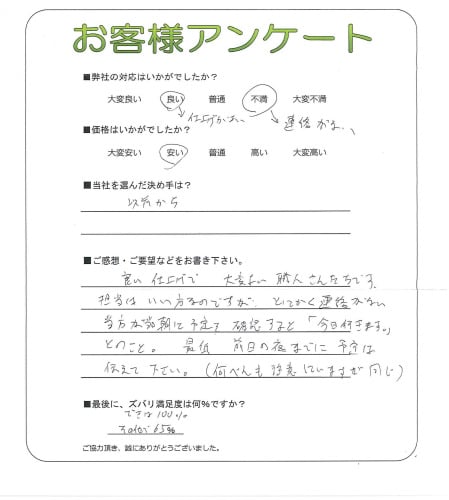 お客様アンケート
■弊社の対応はいかがでしたか？
大変良い 良い 普通 不満 大変不満
仕上げが良い 連絡がない
■価格はいかがでしたか？
大変安い 安い 普通 高い 大変高い
■当社を選んだ決め手は？
以前から
■ご感想・ご要望などをお書き下さい。
良い仕上げで 大変よい職人さんたちです。
担当はいい方なのですが、とにかく連絡がない
当方が当朝に予定を確認すると「今日行きます。」
とのこと。最低 前日の夜までに予定は
伝えて下さい。(何べんも注意していますが同じ)
■最後に、ズバリ満足度は何%ですか？
できは100%
その他で65%
ご協力頂き、誠にありがとうございました。